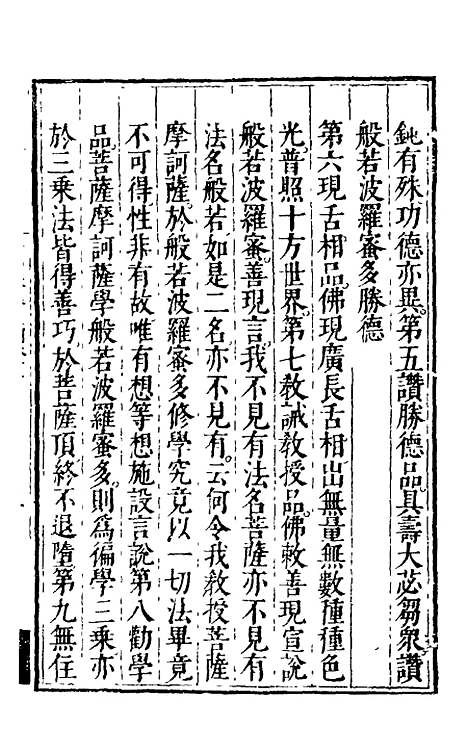 鈍有殊功德亦異。第五讚勝德品。具壽大苾芻衆讚
般若波羅蜜多勝德
第六現舌相品。佛現廣長舌相出無量無數種種色
光普照十方世界。第七教誡教授品。佛敕善現宣說
般若波羅蜜。善現言。我不見有法名菩薩亦不見有
法名般若。如是二名亦不見有。云何令我教授菩薩
摩訶薩。於般若波羅蜜多修學究竟以一切法畢竟
不可得性非有故唯有想等想施設言說第八勸學
品。菩薩摩訶薩學般若波羅蜜多。則為徧學三乘亦
於三乘法皆得善巧於菩薩頂終不退墮第九無住